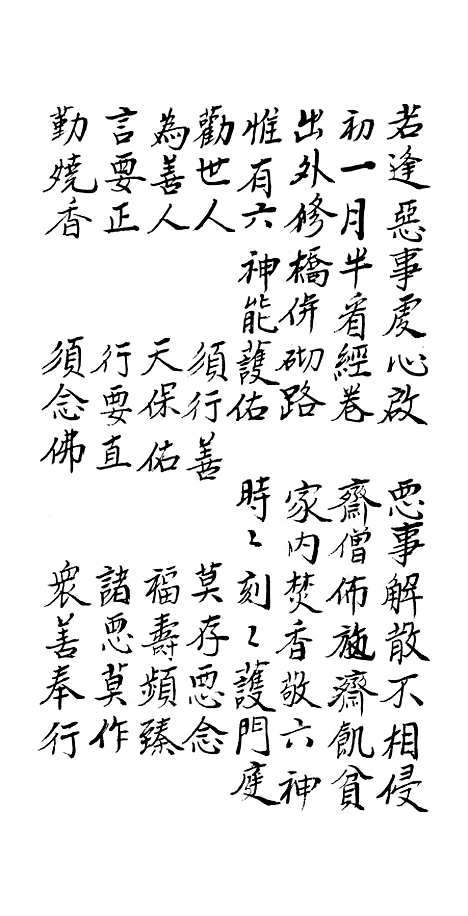 若逢惡事處心啟　惡事解散不相侵
初一月半看經卷　齋僧佈施齋飢貧
出外修橋併砌路　家内焚香敬六神
惟有六神能護佑　時〻刻〻護門庭
勸世人　須行善　莫存惡念
為善人　天保佑　福壽頻臻
言要正　行要直　諸惡莫作
勤燒香　須念佛　衆善奉行